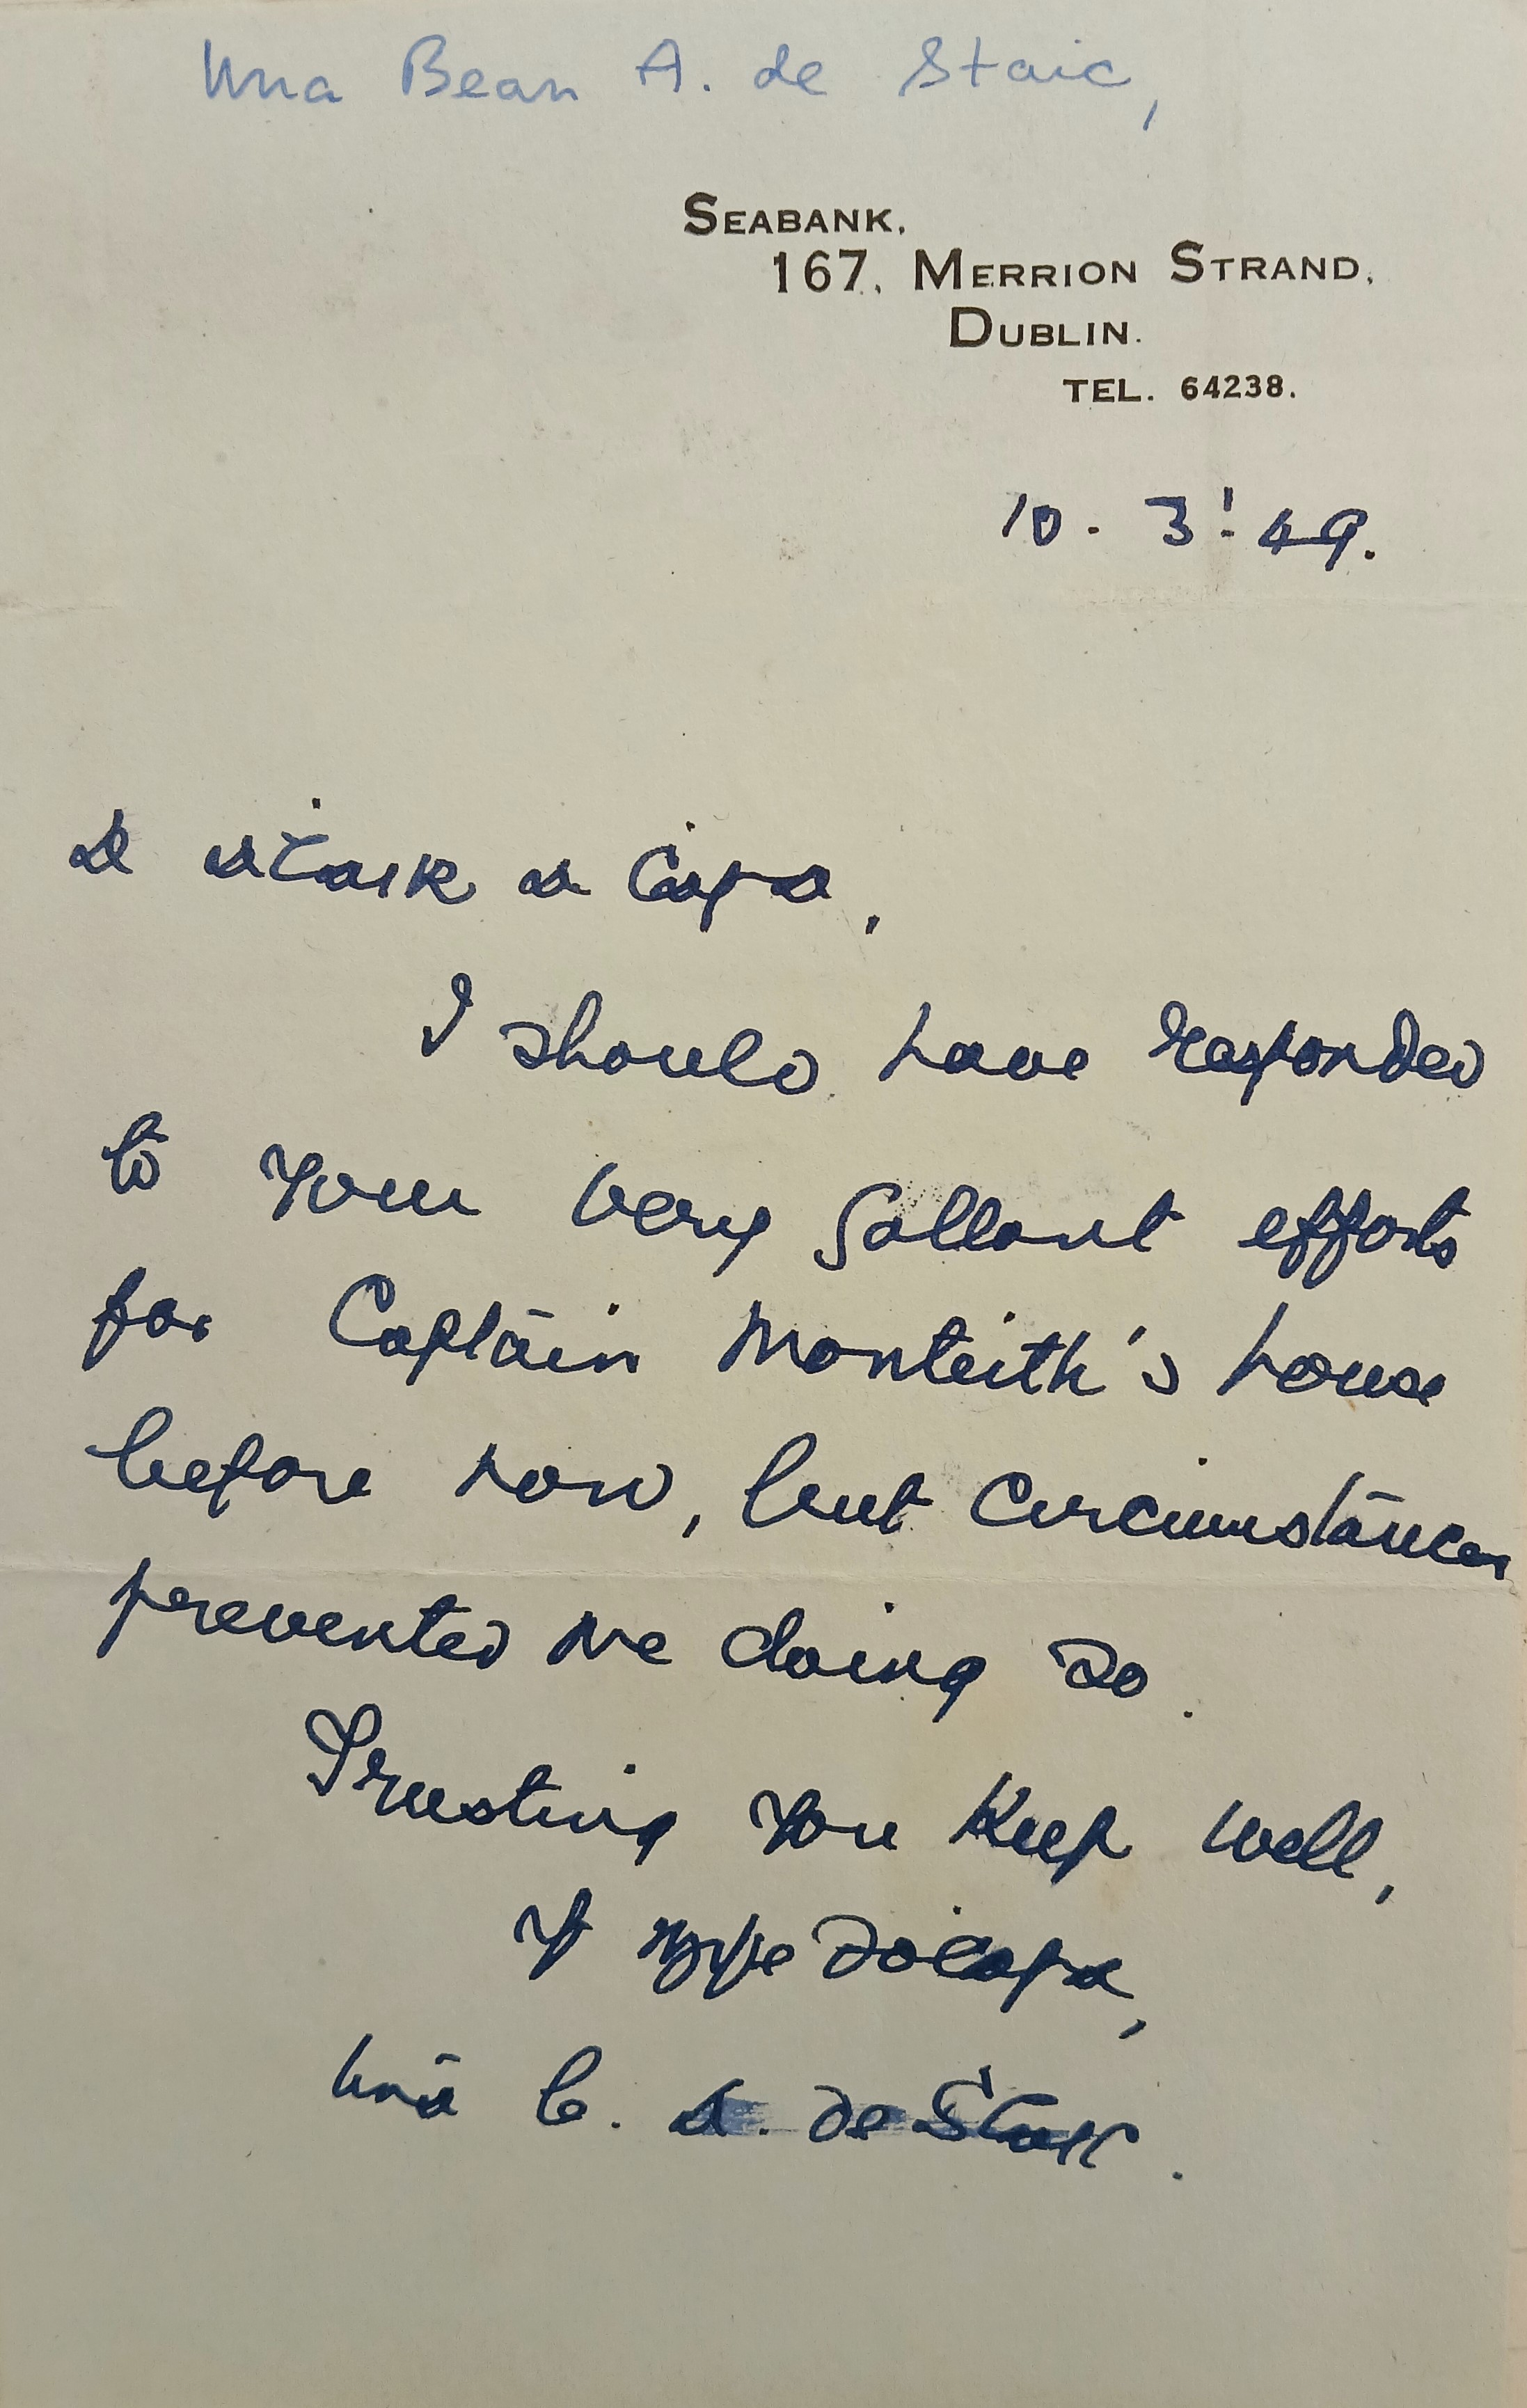 Una Bean A. de Staic,
SEABANK,
167, MERRION STRAND,
DUBLIN.
TEL. 64238.
10. 3. 49.
A aṫair a Ċara,
I should have responded
to your very gallant efforts
for Captain Monteith's house
before now, but circumstances
prevented me doing so.
Trusting you keep well,
Is mise do ċara,
Una B. A. de Staic.